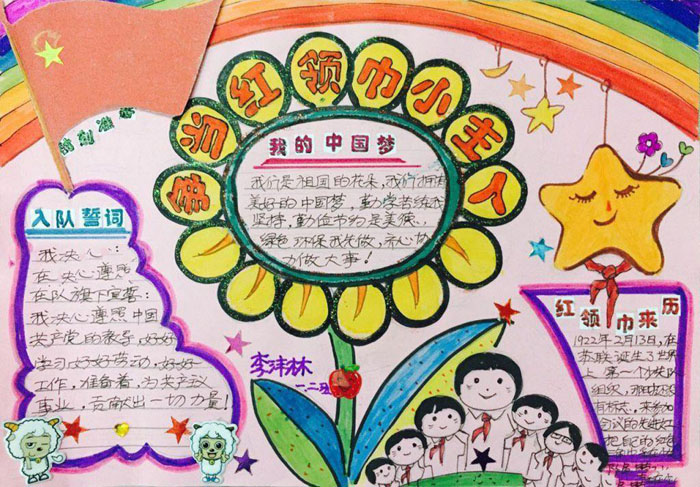 争当红领巾小主人
时刻准备
我的中国梦
我们是祖国的花朵,我们拥有
美好的中国梦,勤学苦练我
坚持,勤俭节约是美德,
绿色环保我先做,齐心协
力做大事!
入队誓词
我决心:
在决心遵照
在队旗下宣誓:
我决心遵照中国
共产党的教导,好好
学习好好劳动,好好
工作,准备着,为共产主
事业,贡献出一切力量!
李 林
一.二班
红领巾来历
1922年2月13日,在
苏联诞生了世界
上第一个少先队
组织,
有标志,来参加
会议的先进女
把自己的红